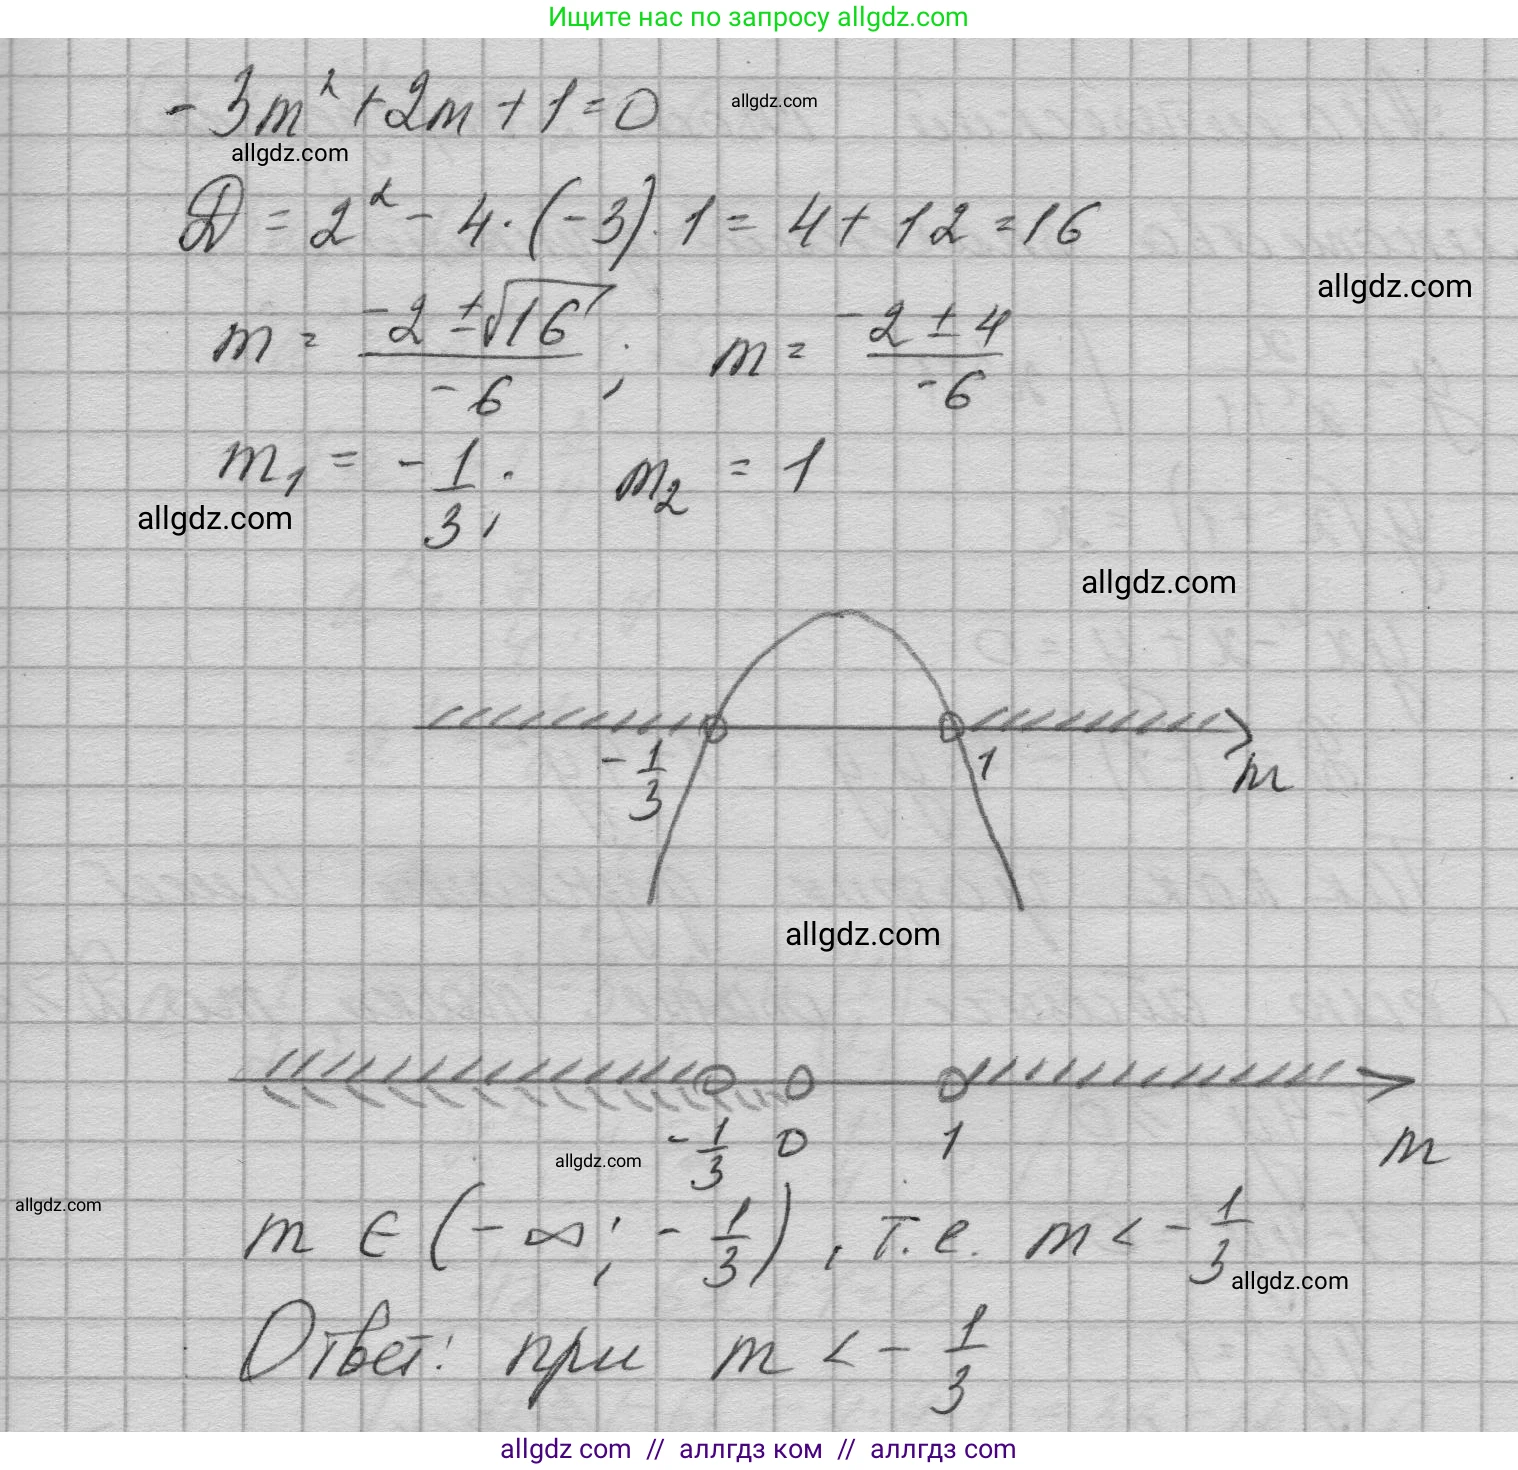 Ищите нас по запросу allgdz.com
-3m² + 2m + 1 = 0
allgdz.com
allgdz.com
D = 2² - 4 · (-3) · 1 = 4 + 12 = 16
allgdz.com
m = (-2 ± √16)/(-6) ; m = (-2 ± 4)/(-6)
m₁ = -1/3 ; m₂ = 1
allgdz.com
allgdz.com
-1/3 1 m
allgdz.com
-1/3 0 1 m
allgdz.com
allgdz.com
m ∈ (-∞; -1/3), т.е. m < -1/3
allgdz.com
Ответ: при m < -1/3
allgdz com // аллгдз ком // аллгдз com